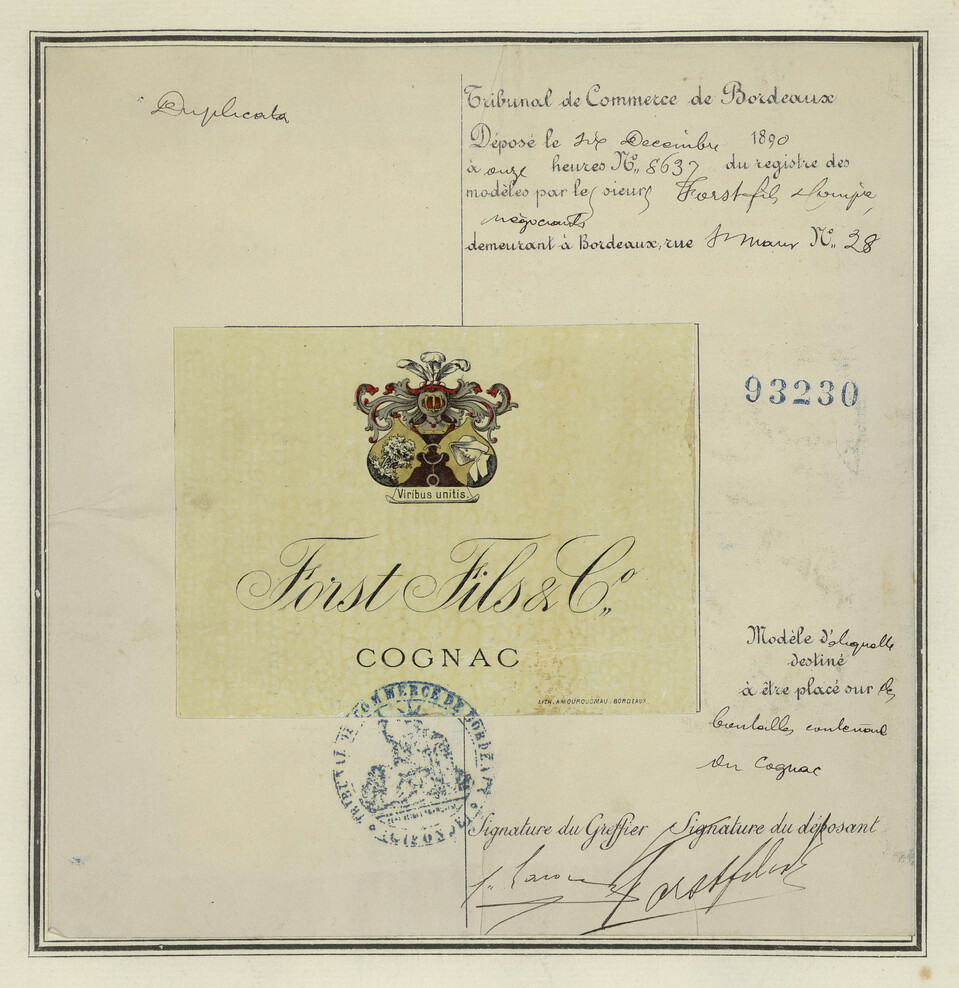 Duplicata
Tribunal de Commerce de Bordeaux
Déposé le six Decembre 1890
à onze heures N° 8637 du registre des
modèles par le sieurs Forst fils & Compie,
négociants
demeurant à Bordeaux, rue St Maur N° 28
93230
Viribus unitis
Forst Fils & Co
COGNAC
LITH. AMOUROUDMAU. BORDEAUX
Modèle d'étiquette
destiné
à être placé sur des
bouteilles contenant
du Cognac
TRIBUNAL DE COMMERCE DE BORDEAUX
Signature du Greffier Signature du déposant
Forst fils & Co